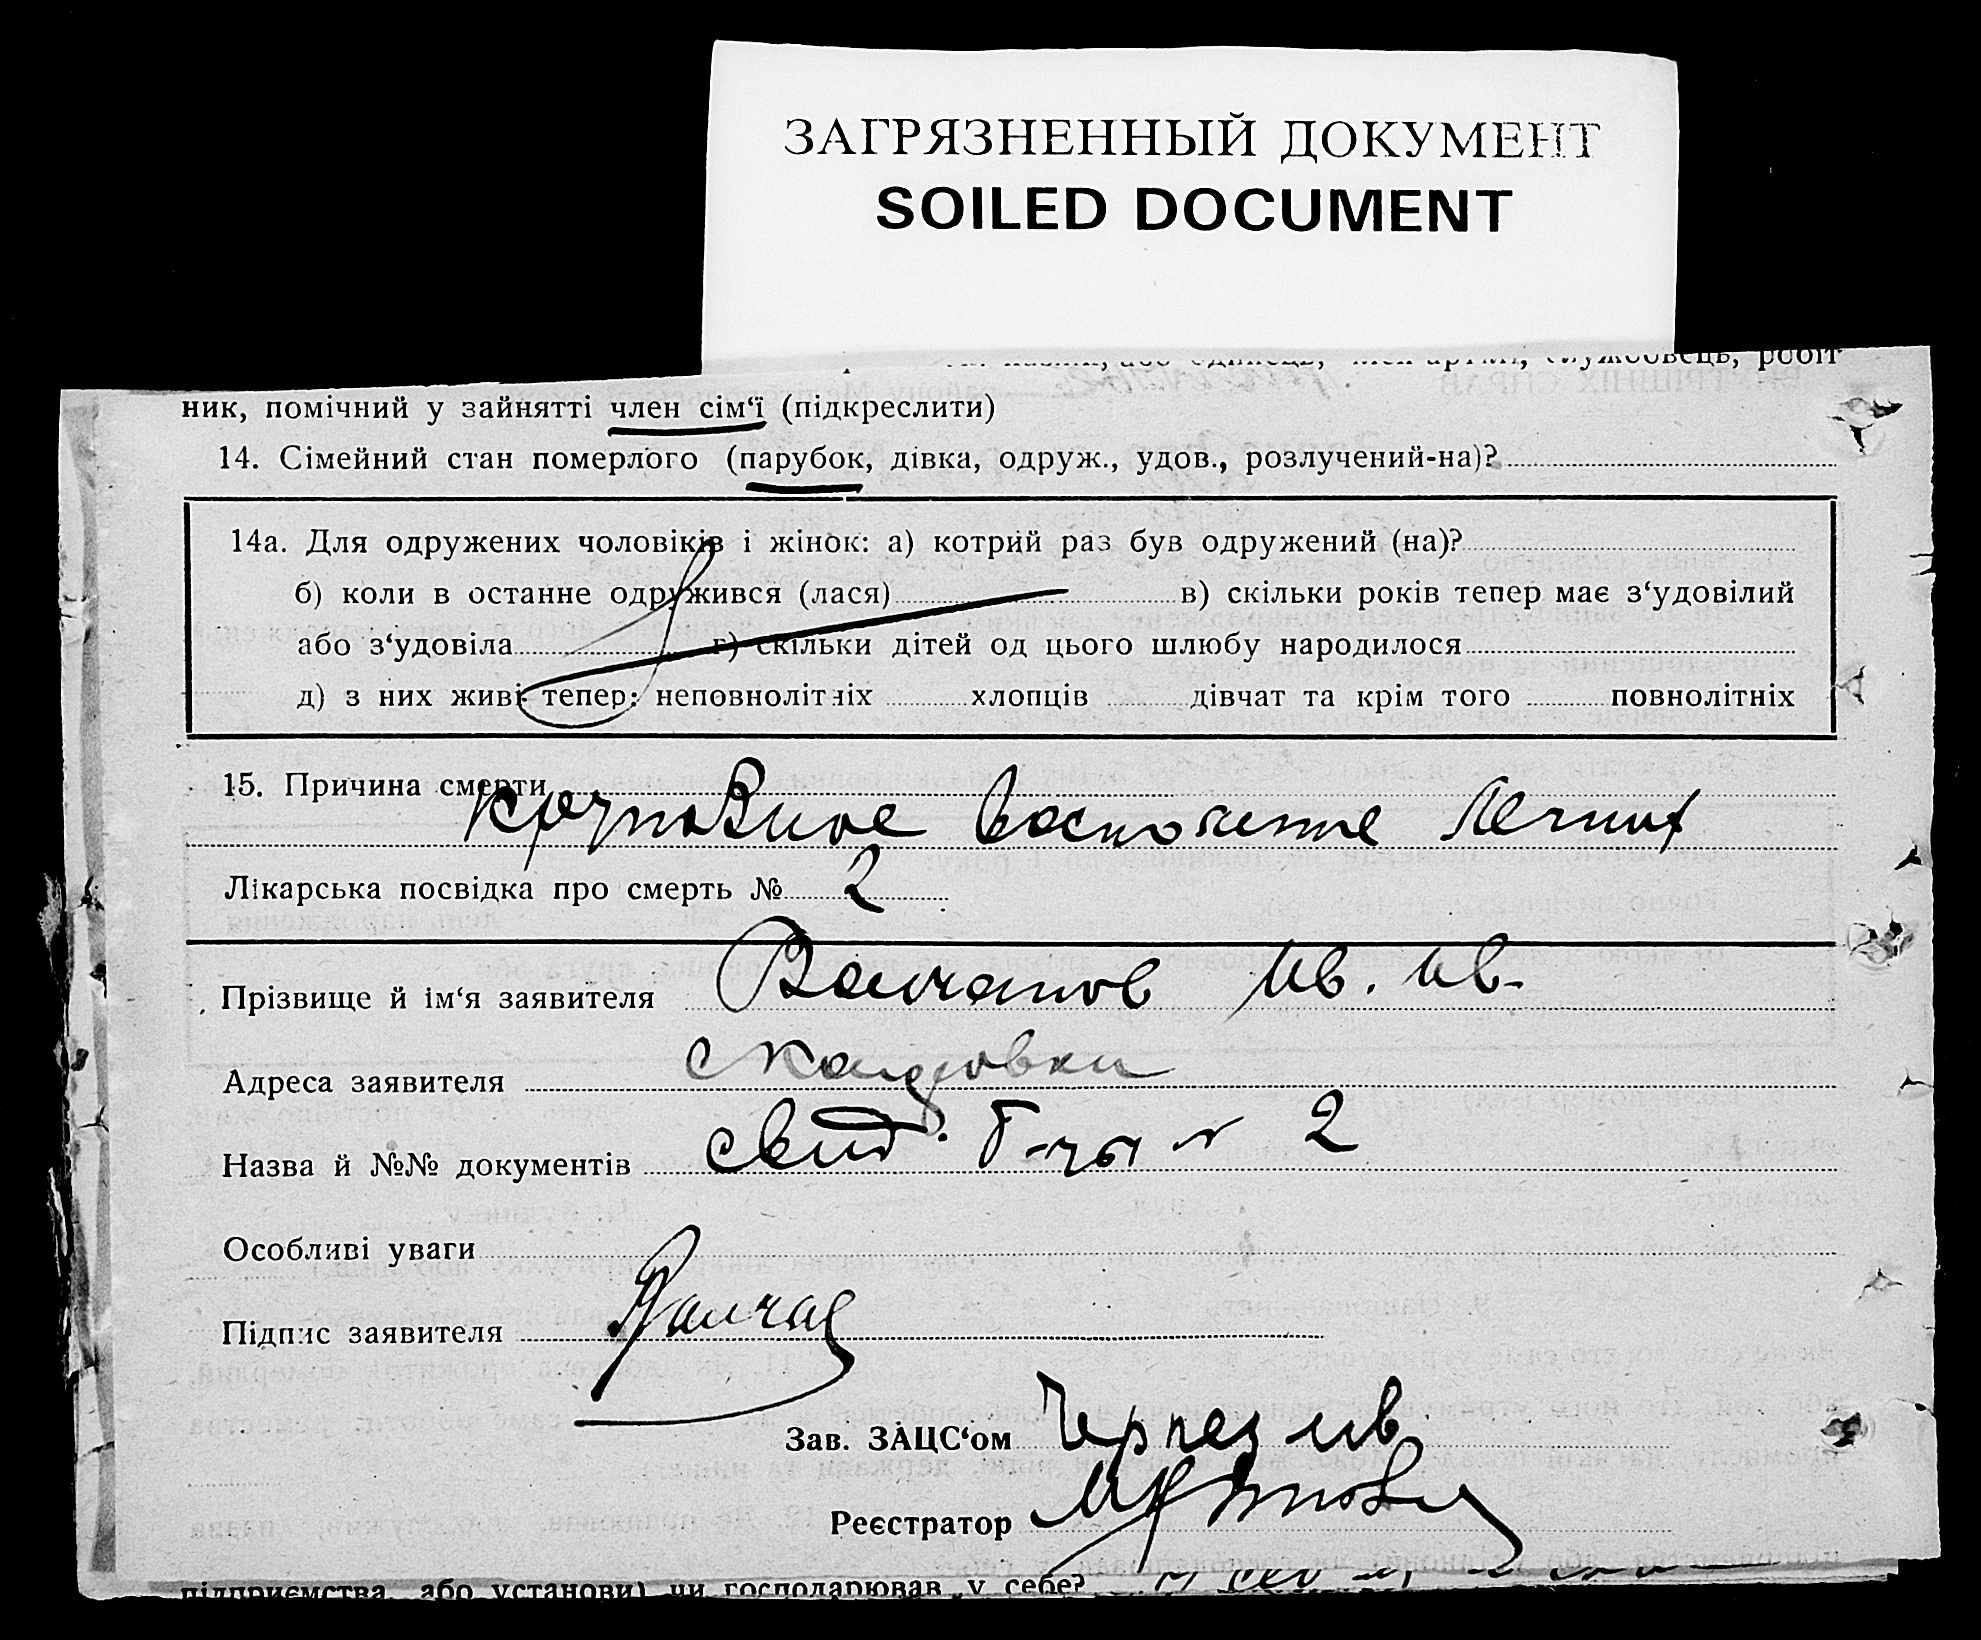 ЗАГРЯЗНЕННЫЙ ДОКУМЕНТ
SOILED DOCUMENT
робіт
ник, помічний у зайнятті член сім‘ї (підкреслити)
14. Сімейний стан померлого (парубок, дівка, одруж., удов., розлучений-на)?
14а. Для одружених чоловіків і жінок: а) котрий раз був одружений (на)?
б) коли в останне одружився (лася) в) скільки років тепер має з‘удовілий
або з‘удовіла г) скільки дітей од цього шлюбу народилося
д) з них живі тепер: неповнолітніх хлопців дівчат та крім того повнолітніх
15. Причина смерти
крупозное воспаление легких
Лікарська посвідка про смерть № 2
Прізвище й ім‘я заявителя Ив. Ив.
Адреса заявителя
Назва й №№ документів свид. б-цы № 2
Особливі уваги
Підпис заявителя
Зав. ЗАЦС‘ом
Реєстратор
підприємства, або установи) чи господарював у себе?